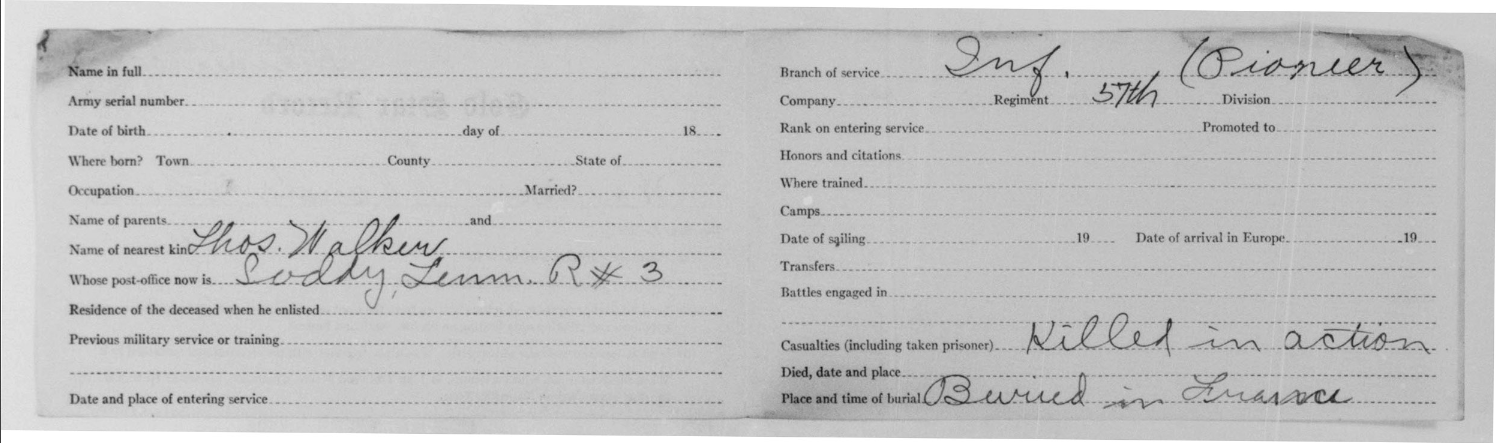 Name in full
Army serial number
Date of birth day of 18
Where born? Town County State of
Occupation Married?
Name of parents and
Name of nearest kin Thos. Walker
Whose post-office now is Soddy, Tenn. R # 3
Residence of the deceased when he enlisted
Previous military service or training
Date and place of entering service
Branch of service Inf. (Pioneer)
Company Regiment 57th Division
Rank on entering service Promoted to
Honors and citations
Where trained
Camps
Date of sailing 19 Date of arrival in Europe 19
Transfers
Battles engaged in
Casualties (including taken prisoner) Killed in action
Died, date and place
Place and time of burial Buried in France